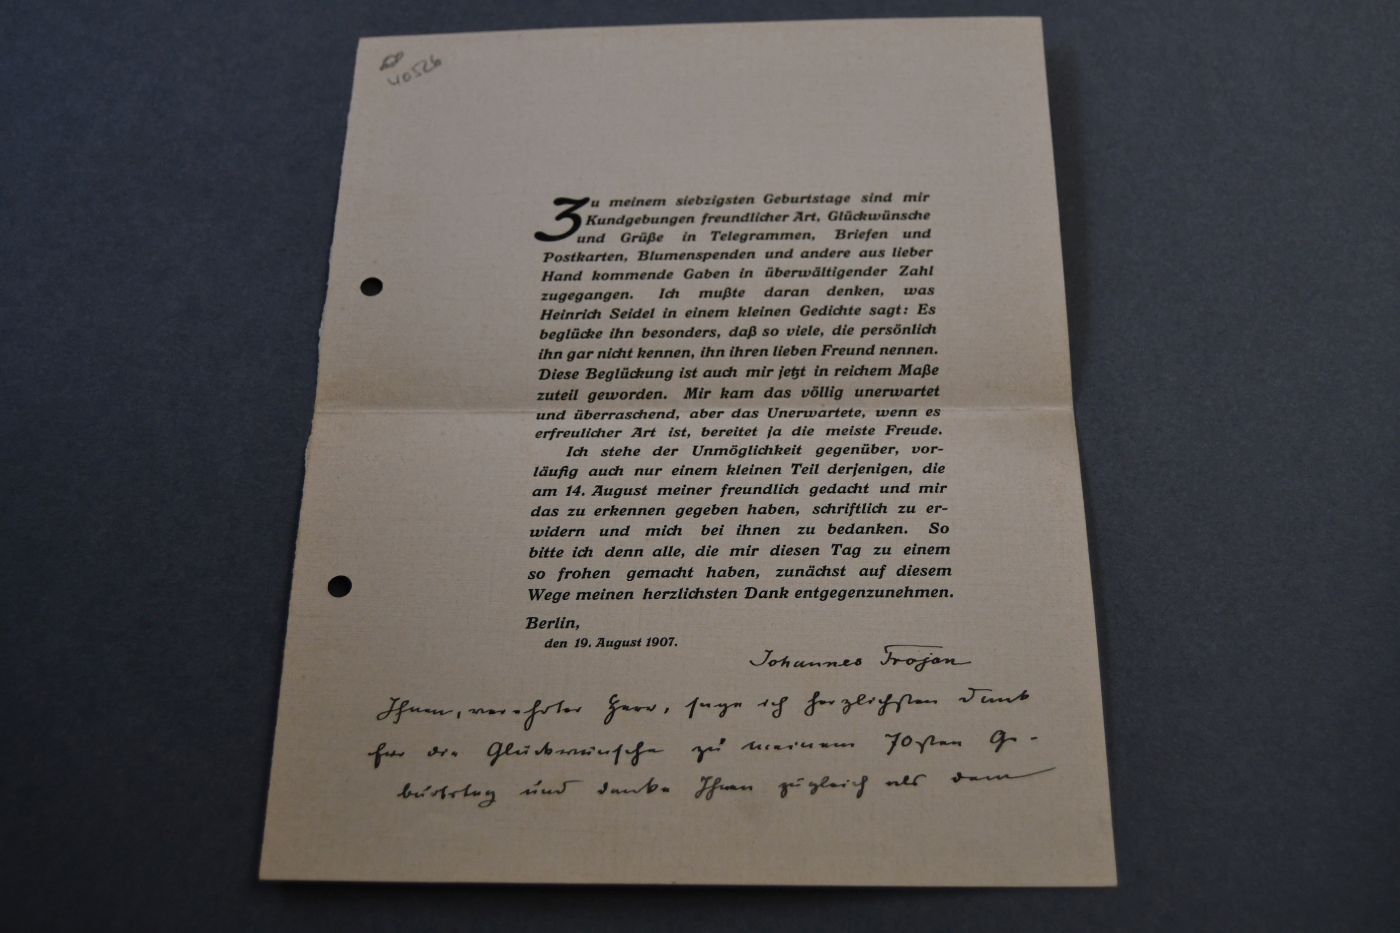 40526
Zu meinem siebzigsten Geburtstage sind mir
Kundgebungen freundlicher Art, Glückwünsche
und Grüße in Telegrammen, Briefen und
Postkarten, Blumenspenden und andere aus lieber
Hand kommende Gaben in überwältigender Zahl
zugegangen. Ich mußte daran denken, was
Heinrich Seidel in einem kleinen Gedichte sagt: Es
beglücke ihn besonders, daß so viele, die persönlich
ihn gar nicht kennen, ihn ihren lieben Freund nennen.
Diese Beglückung ist auch mir jetzt in reichem Maße
zuteil geworden. Mir kam das völlig unerwartet
und überraschend, aber das Unerwartete, wenn es
erfreulicher Art ist, bereitet ja die meiste Freude.
Ich stehe der Unmöglichkeit gegenüber, vor-
läufig auch nur einem kleinen Teil derjenigen, die
am 14. August meiner freundlich gedacht und mir
das zu erkennen gegeben haben, schriftlich zu er-
widern und mich bei ihnen zu bedanken. So
bitte ich denn alle, die mir diesen Tag zu einem
so frohen gemacht haben, zunächst auf diesem
Wege meinen herzlichsten Dank entgegenzunehmen.
Berlin,
den 19. August 1907.
Johannes Trojan
Ihnen, verehrter Herr, sage ich herzlichsten Dank
für die Glückwünsche zu meinem 70sten Ge-
burtstag und danke Ihnen zugleich als dem